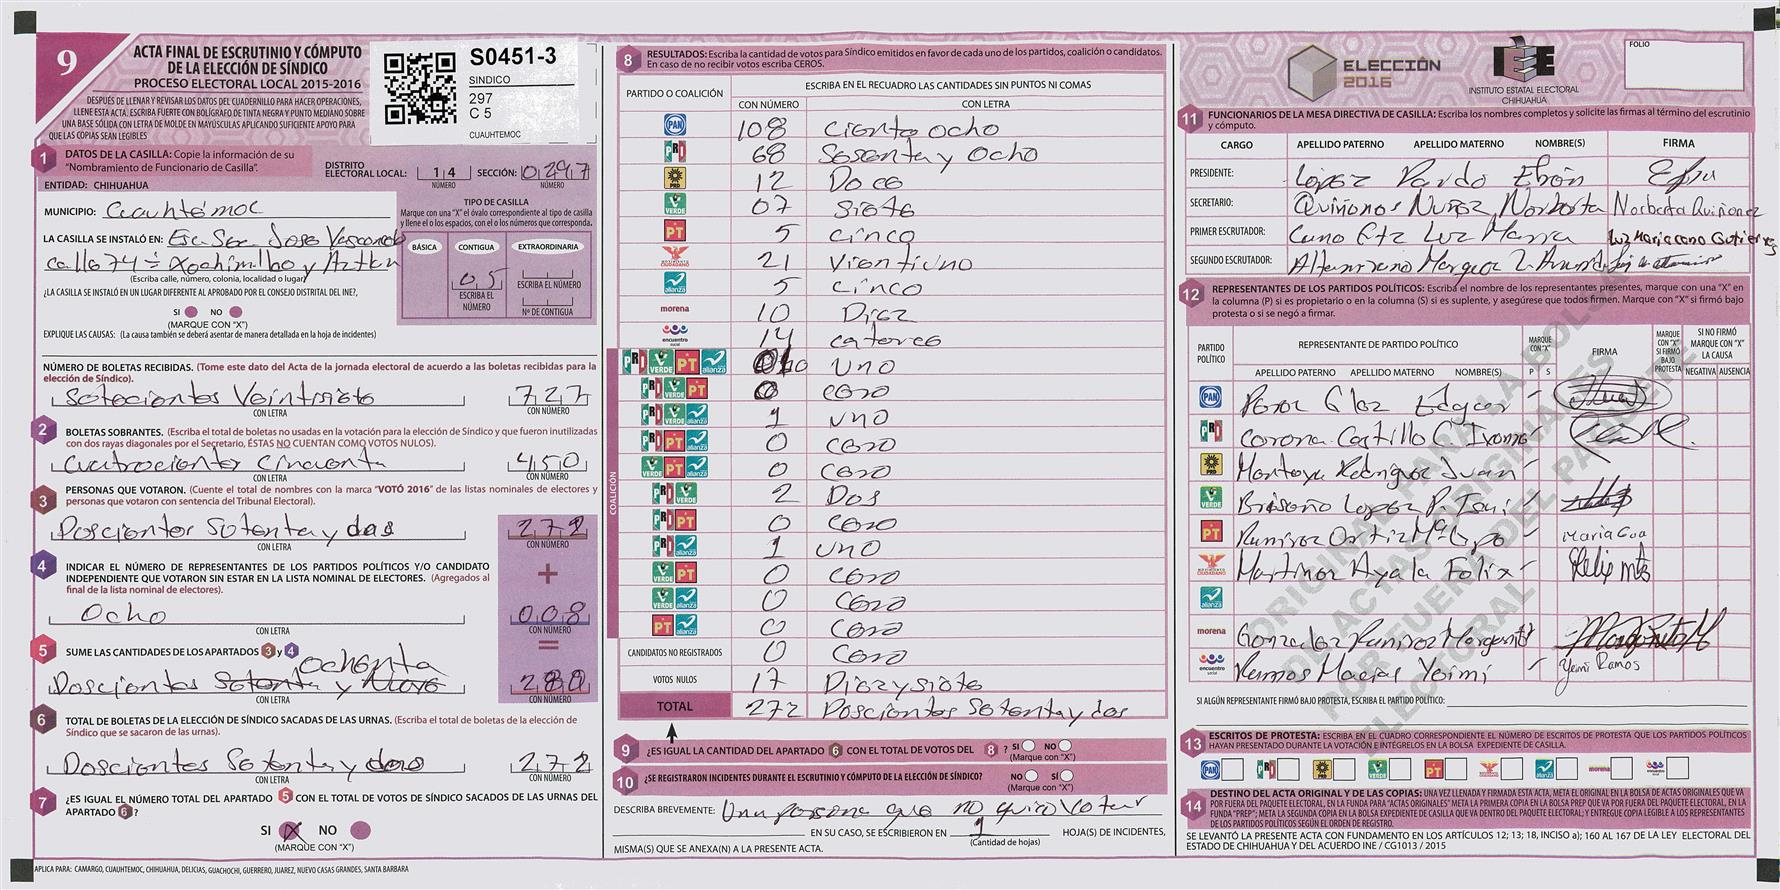 9
ACTA FINAL DE ESCRUTINIO Y CÓMPUTO
DE LA ELECCIÓN DE SÍNDICO
PROCESO ELECTORAL LOCAL 2015-2016
DESPUÉS DE LLENAR Y REVISAR LOS DATOS DEL CUADERNILLO PARA HACER OPERACIONES,
LLENE ESTA ACTA. ESCRIBA FUERTE CON BOLÍGRAFO DE TINTA NEGRA Y PUNTO MEDIANO SOBRE
UNA BASE SÓLIDA CON LETRA DE MOLDE EN MAYÚSCULAS APLICANDO SUFICIENTE APOYO PARA
QUE LAS COPIAS SEAN LEGIBLES
S0451-3
SINDICO
297
C 5
CUAUHTEMOC
1 DATOS DE LA CASILLA: Copie la información de su
"Nombramiento de Funcionario de Casilla".
DISTRITO ELECTORAL LOCAL: 14 NÚMERO SECCIÓN: 0297 NÚMERO
ENTIDAD: CHIHUAHUA
MUNICIPIO: Cuauhtémoc
LA CASILLA SE INSTALÓ EN: Esc. Sec. Jose Vasconcelo
calle 74 Xochimilko y Aztkn
(Escriba calle, número, colonia, localidad o lugar)
¿LA CASILLA SE INSTALÓ EN UN LUGAR DIFERENTE AL APROBADO POR EL CONSEJO DISTRITAL DEL INE?,
SI NO
(MARQUE CON "X")
EXPLIQUE LAS CAUSAS: (La causa también se deberá asentar de manera detallada en la hoja de incidentes)
TIPO DE CASILLA
Marque con una "X" el óvalo correspondiente al tipo de casilla
y llene el o los espacios, con el o los números que corresponda.
BÁSICA CONTIGUA EXTRAORDINARIA
05
ESCRIBA EL NÚMERO
ESCRIBA EL NÚMERO
Nº DE CONTIGUA
NÚMERO DE BOLETAS RECIBIDAS. (Tome este dato del Acta de la jornada electoral de acuerdo a las boletas recibidas para la
elección de Síndico).
Setecientos Veintisiete 727
CON LETRA CON NÚMERO
2 BOLETAS SOBRANTES. (Escriba el total de boletas no usadas en la votación para la elección de Síndico y que fueron inutilizadas
con dos rayas diagonales por el Secretario, ÉSTAS NO CUENTAN COMO VOTOS NULOS).
Cuatrocientos Cincuenta 450
CON LETRA CON NÚMERO
3 PERSONAS QUE VOTARON. (Cuente el total de nombres con la marca "VOTÓ 2016" de las listas nominales de electores y
personas que votaron con sentencia del Tribunal Electoral).
Doscientos Setenta y dos 272
CON LETRA CON NÚMERO
+
4 INDICAR EL NÚMERO DE REPRESENTANTES DE LOS PARTIDOS POLÍTICOS Y/O CANDIDATO
INDEPENDIENTE QUE VOTARON SIN ESTAR EN LA LISTA NOMINAL DE ELECTORES. (Agregados al
final de la lista nominal de electores).
Ocho 008
CON LETRA CON NÚMERO
=
5 SUME LAS CANTIDADES DE LOS APARTADOS 3 y 4
ochenta
Doscientos Setenta y 280
CON LETRA CON NÚMERO
6 TOTAL DE BOLETAS DE LA ELECCIÓN DE SÍNDICO SACADAS DE LAS URNAS. (Escriba el total de boletas de la elección de
Síndico que se sacaron de las urnas).
Doscientos Setenta y dos 272
CON LETRA CON NÚMERO
7 ¿ES IGUAL EL NÚMERO TOTAL DEL APARTADO 5 CON EL TOTAL DE VOTOS DE SÍNDICO SACADOS DE LAS URNAS DEL
APARTADO 6?
SI X NO
(MARQUE CON "X")
APLICA PARA: CAMARGO, CUAUHTEMOC, CHIHUAHUA, DELICIAS, GUACHOCHI, GUERRERO, JUAREZ, NUEVO CASAS GRANDES, SANTA BARBARA
8 RESULTADOS: Escriba la cantidad de votos para Síndico emitidos en favor de cada uno de los partidos, coalición o candidatos.
En caso de no recibir votos escriba CEROS.
PARTIDO O COALICIÓN
ESCRIBA EN EL RECUADRO LAS CANTIDADES SIN PUNTOS NI COMAS
CON NÚMERO CON LETRA
PAN 108 Ciento Ocho
PRI 68 Sesenta y Ocho
PRD 12 Doce
VERDE 07 Siete
PT 5 Cinco
MOVIMIENTO CIUDADANO 21 Vientiuno
alianza 5 Cinco
morena 10 Diez
encuentro social 14 catorce
COALICIÓN
PRI VERDE PT alianza Uno
PRI VERDE PT 0 Cero
PRI VERDE alianza 1 Uno
PRI PT alianza 0 Cero
VERDE PT alianza 0 Cero
PRI VERDE 2 Dos
PRI PT 0 Cero
PRI alianza 1 Uno
VERDE PT 0 Cero
VERDE alianza 0 Cero
PT alianza 0 Cero
CANDIDATOS NO REGISTRADOS 0 Cero
VOTOS NULOS 17 Diezysiete
TOTAL 272 Doscientos Setenta y dos
9 ¿ES IGUAL LA CANTIDAD DEL APARTADO 6 CON EL TOTAL DE VOTOS DEL 8 ? SI NO
(Marque con "X")
10 ¿SE REGISTRARON INCIDENTES DURANTE EL ESCRUTINIO Y CÓMPUTO DE LA ELECCIÓN DE SÍNDICO? NO SÍ
(Marque con "X")
DESCRIBA BREVEMENTE: Una persona que no quizo Votar
EN SU CASO, SE ESCRIBIERON EN 1 HOJA(S) DE INCIDENTES,
(Cantidad de hojas)
MISMA(S) QUE SE ANEXA(N) A LA PRESENTE ACTA.
ELECCIÓN
2016
IEE
INSTITUTO ESTATAL ELECTORAL
CHIHUAHUA
FOLIO
11 FUNCIONARIOS DE LA MESA DIRECTIVA DE CASILLA: Escriba los nombres completos y solicite las firmas al término del escrutinio
y cómputo.
CARGO APELLIDO PATERNO APELLIDO MATERNO NOMBRE(S) FIRMA
PRESIDENTE: López Pardo Efrén
SECRETARIO: Quiñones Nuñez Norberta Norberta Quiñonez
PRIMER ESCRUTADOR: Cano Gtz Luz Maria Luz Maria cano Gutierres
SEGUNDO ESCRUTADOR: Altamirano Marquez
12 REPRESENTANTES DE LOS PARTIDOS POLÍTICOS: Escriba el nombre de los representantes presentes, marque con una "X" en
la columna (P) si es propietario o en la columna (S) si es suplente, y asegúrese que todos firmen. Marque con "X" si firmó bajo
protesta o si se negó a firmar.
PARTIDO POLÍTICO
REPRESENTANTE DE PARTIDO POLÍTICO
APELLIDO PATERNO APELLIDO MATERNO NOMBRE(S)
MARQUE CON "X" P S
FIRMA
MARQUE CON "X" SI FIRMÓ BAJO PROTESTA
SI NO FIRMÓ MARQUE CON "X" LA CAUSA
NEGATIVA AUSENCIA
PAN Edgar
PRI Corona Castillo C Ivonne
PRD Montoya Rodriguez Juan
VERDE Briseño Lopez
PT Ramirez Ortiz Mª Gpe Maria Gua
MOVIMIENTO CIUDADANO Martinez Ayala Felix Felix mtz
alianza
morena Gonzalez Ramirez Margarita Margarita M
encuentro social Ramos Macias Yeimi Yeimi Ramos
ORIGINAL PARA LA BOLSA
DE ACTAS ORIGINALES
POR FUERA DEL PAQUETE
ELECTORAL
SI ALGÚN REPRESENTANTE FIRMÓ BAJO PROTESTA, ESCRIBA EL PARTIDO POLÍTICO:
13 ESCRITOS DE PROTESTA: ESCRIBA EN EL CUADRO CORRESPONDIENTE EL NÚMERO DE ESCRITOS DE PROTESTA QUE LOS PARTIDOS POLÍTICOS
HAYAN PRESENTADO DURANTE LA VOTACIÓN E INTÉGRELOS EN LA BOLSA EXPEDIENTE DE CASILLA.
PAN PRI PRD VERDE PT MOVIMIENTO CIUDADANO alianza morena encuentro social
14 DESTINO DEL ACTA ORIGINAL Y DE LAS COPIAS: UNA VEZ LLENADA Y FIRMADA ESTA ACTA, META EL ORIGINAL EN LA BOLSA DE ACTAS ORIGINALES QUE VA
POR FUERA DEL PAQUETE ELECTORAL, EN LA FUNDA PARA "ACTAS ORIGINALES" META LA PRIMERA COPIA EN LA BOLSA PREP QUE VA POR FUERA DEL PAQUETE ELECTORAL, EN LA
FUNDA "PREP"; META LA SEGUNDA COPIA EN LA BOLSA EXPEDIENTE DE CASILLA QUE VA DENTRO DEL PAQUETE ELECTORAL; Y ENTREGUE COPIA LEGIBLE A LOS REPRESENTANTES
DE LOS PARTIDOS POLÍTICOS SEGÚN EL ORDEN DE REGISTRO.
SE LEVANTÓ LA PRESENTE ACTA CON FUNDAMENTO EN LOS ARTÍCULOS 12; 13; 18, INCISO a); 160 AL 167 DE LA LEY ELECTORAL DEL
ESTADO DE CHIHUAHUA Y DEL ACUERDO INE / CG1013 / 2015